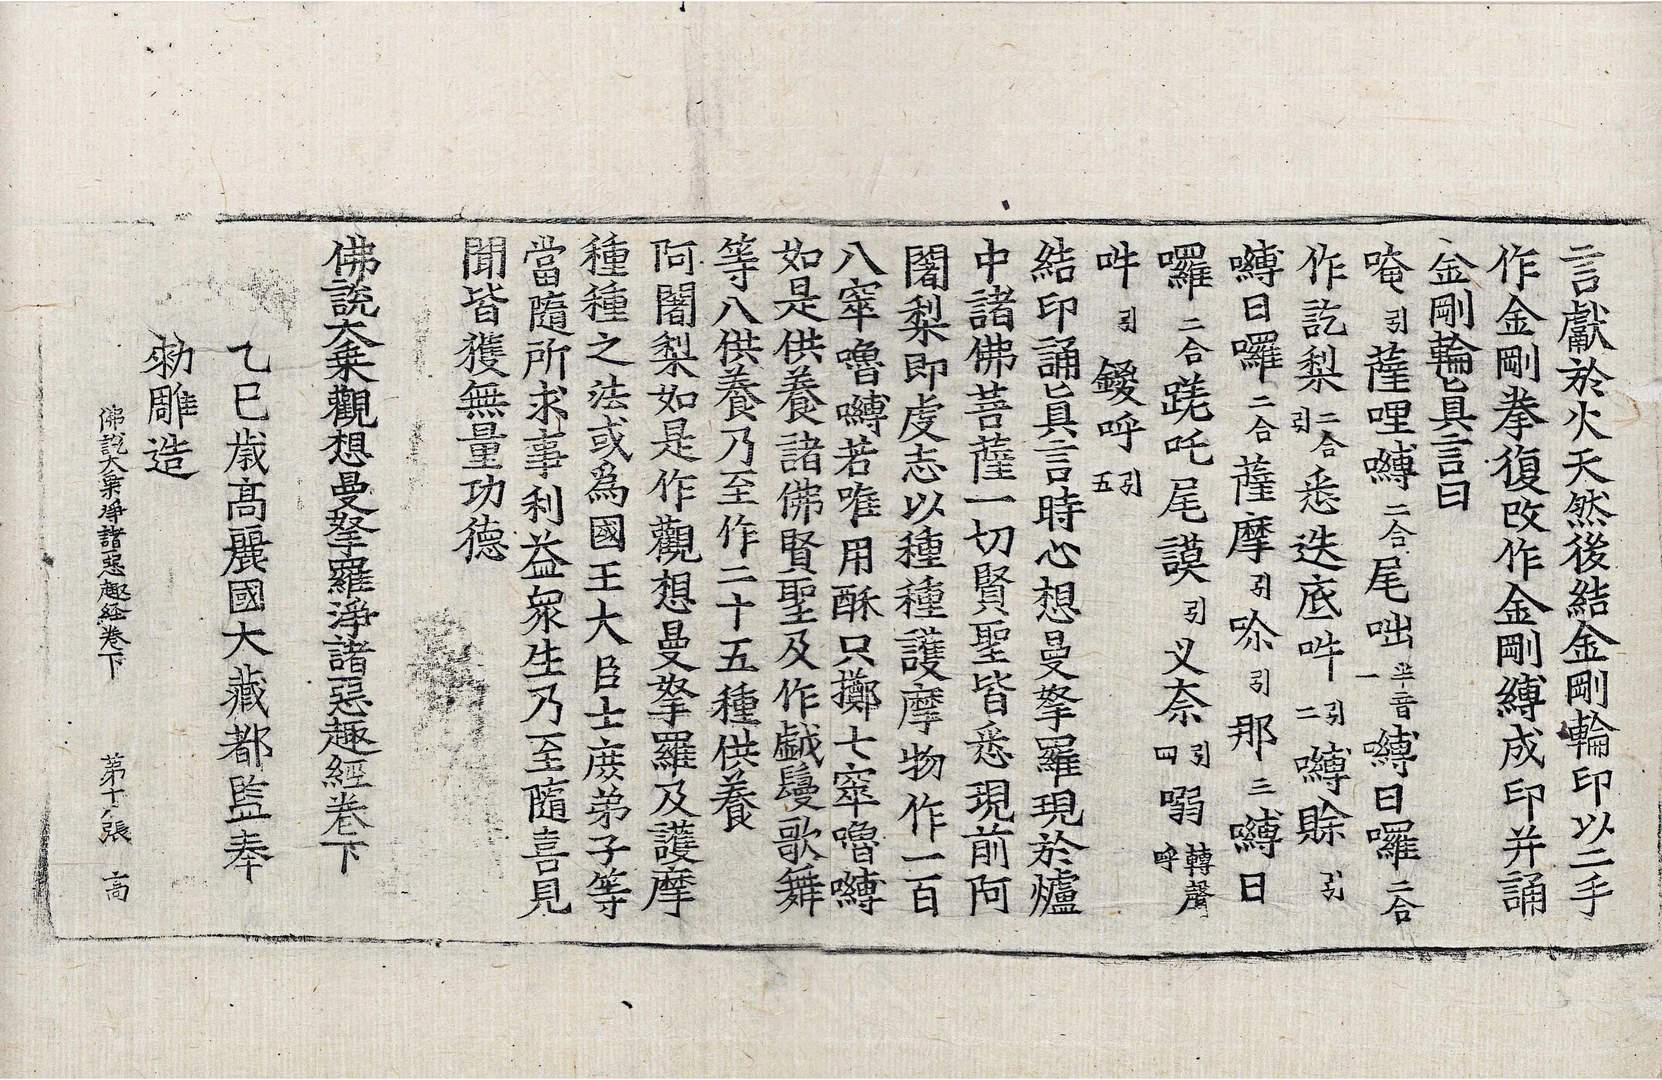 言獻於火天然後結金剛輪印以二手
作金剛拳復改作金剛縛成印并誦
金剛輪真言曰
唵引薩哩嚩二合尾咄半音一嚩日囉二合
作訖梨二合引悉迭底吽引二嚩賒引
嚩日囉二合薩摩引唹引那三嚩日
囉二合蹉吒尾謨引叉奈引四㗚轉聲呼
吽引鑁呼引五
結印誦真言時心想曼拏羅現於爐
中諸佛菩薩一切賢聖皆悉現前阿
闍梨即虔志以種種護摩物作一百
八窣嚕嚩若唯用酥只擲七窣嚕嚩
如是供養諸佛賢聖及作戲鬘歌舞
等八供養乃至作二十五種供養
阿闍梨如是作觀想曼拏羅及護摩
種種之法或爲國王大臣士庶弟子等
當隨所求事利益衆生乃至隨喜見
聞皆獲無量功德
佛說大乘觀想曼拏羅淨諸惡趣經卷下
乙巳歲高麗國大藏都監奉
勑雕造
佛說大乘淨諸惡趣経卷下 第十八張 高